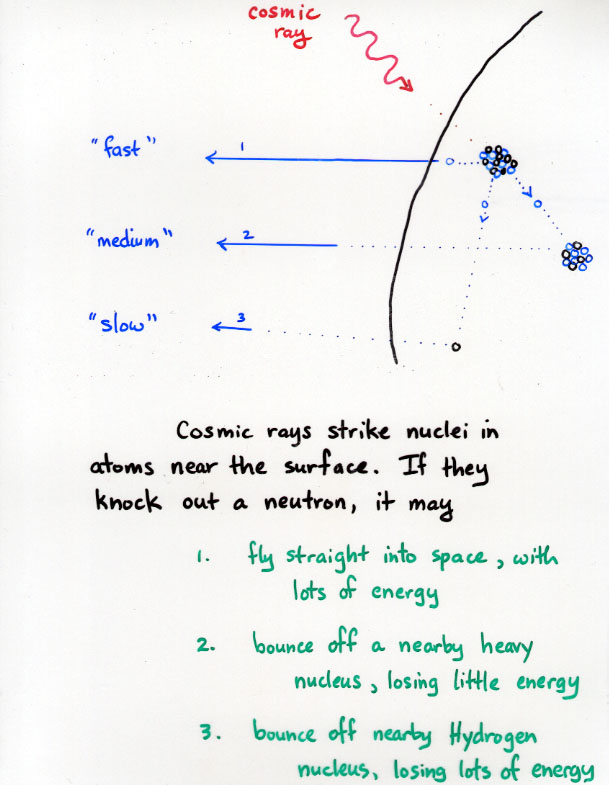 cosmic
ray
"fast"
1
"medium"
2
"slow"
3
Cosmic rays strike nuclei in
atoms near the surface. If they
knock out a neutron, it may
1. fly straight into space, with
lots of energy
2. bounce off a nearby heavy
nucleus, losing little energy
3. bounce off nearby Hydrogen
nucleus, losing lots of energy